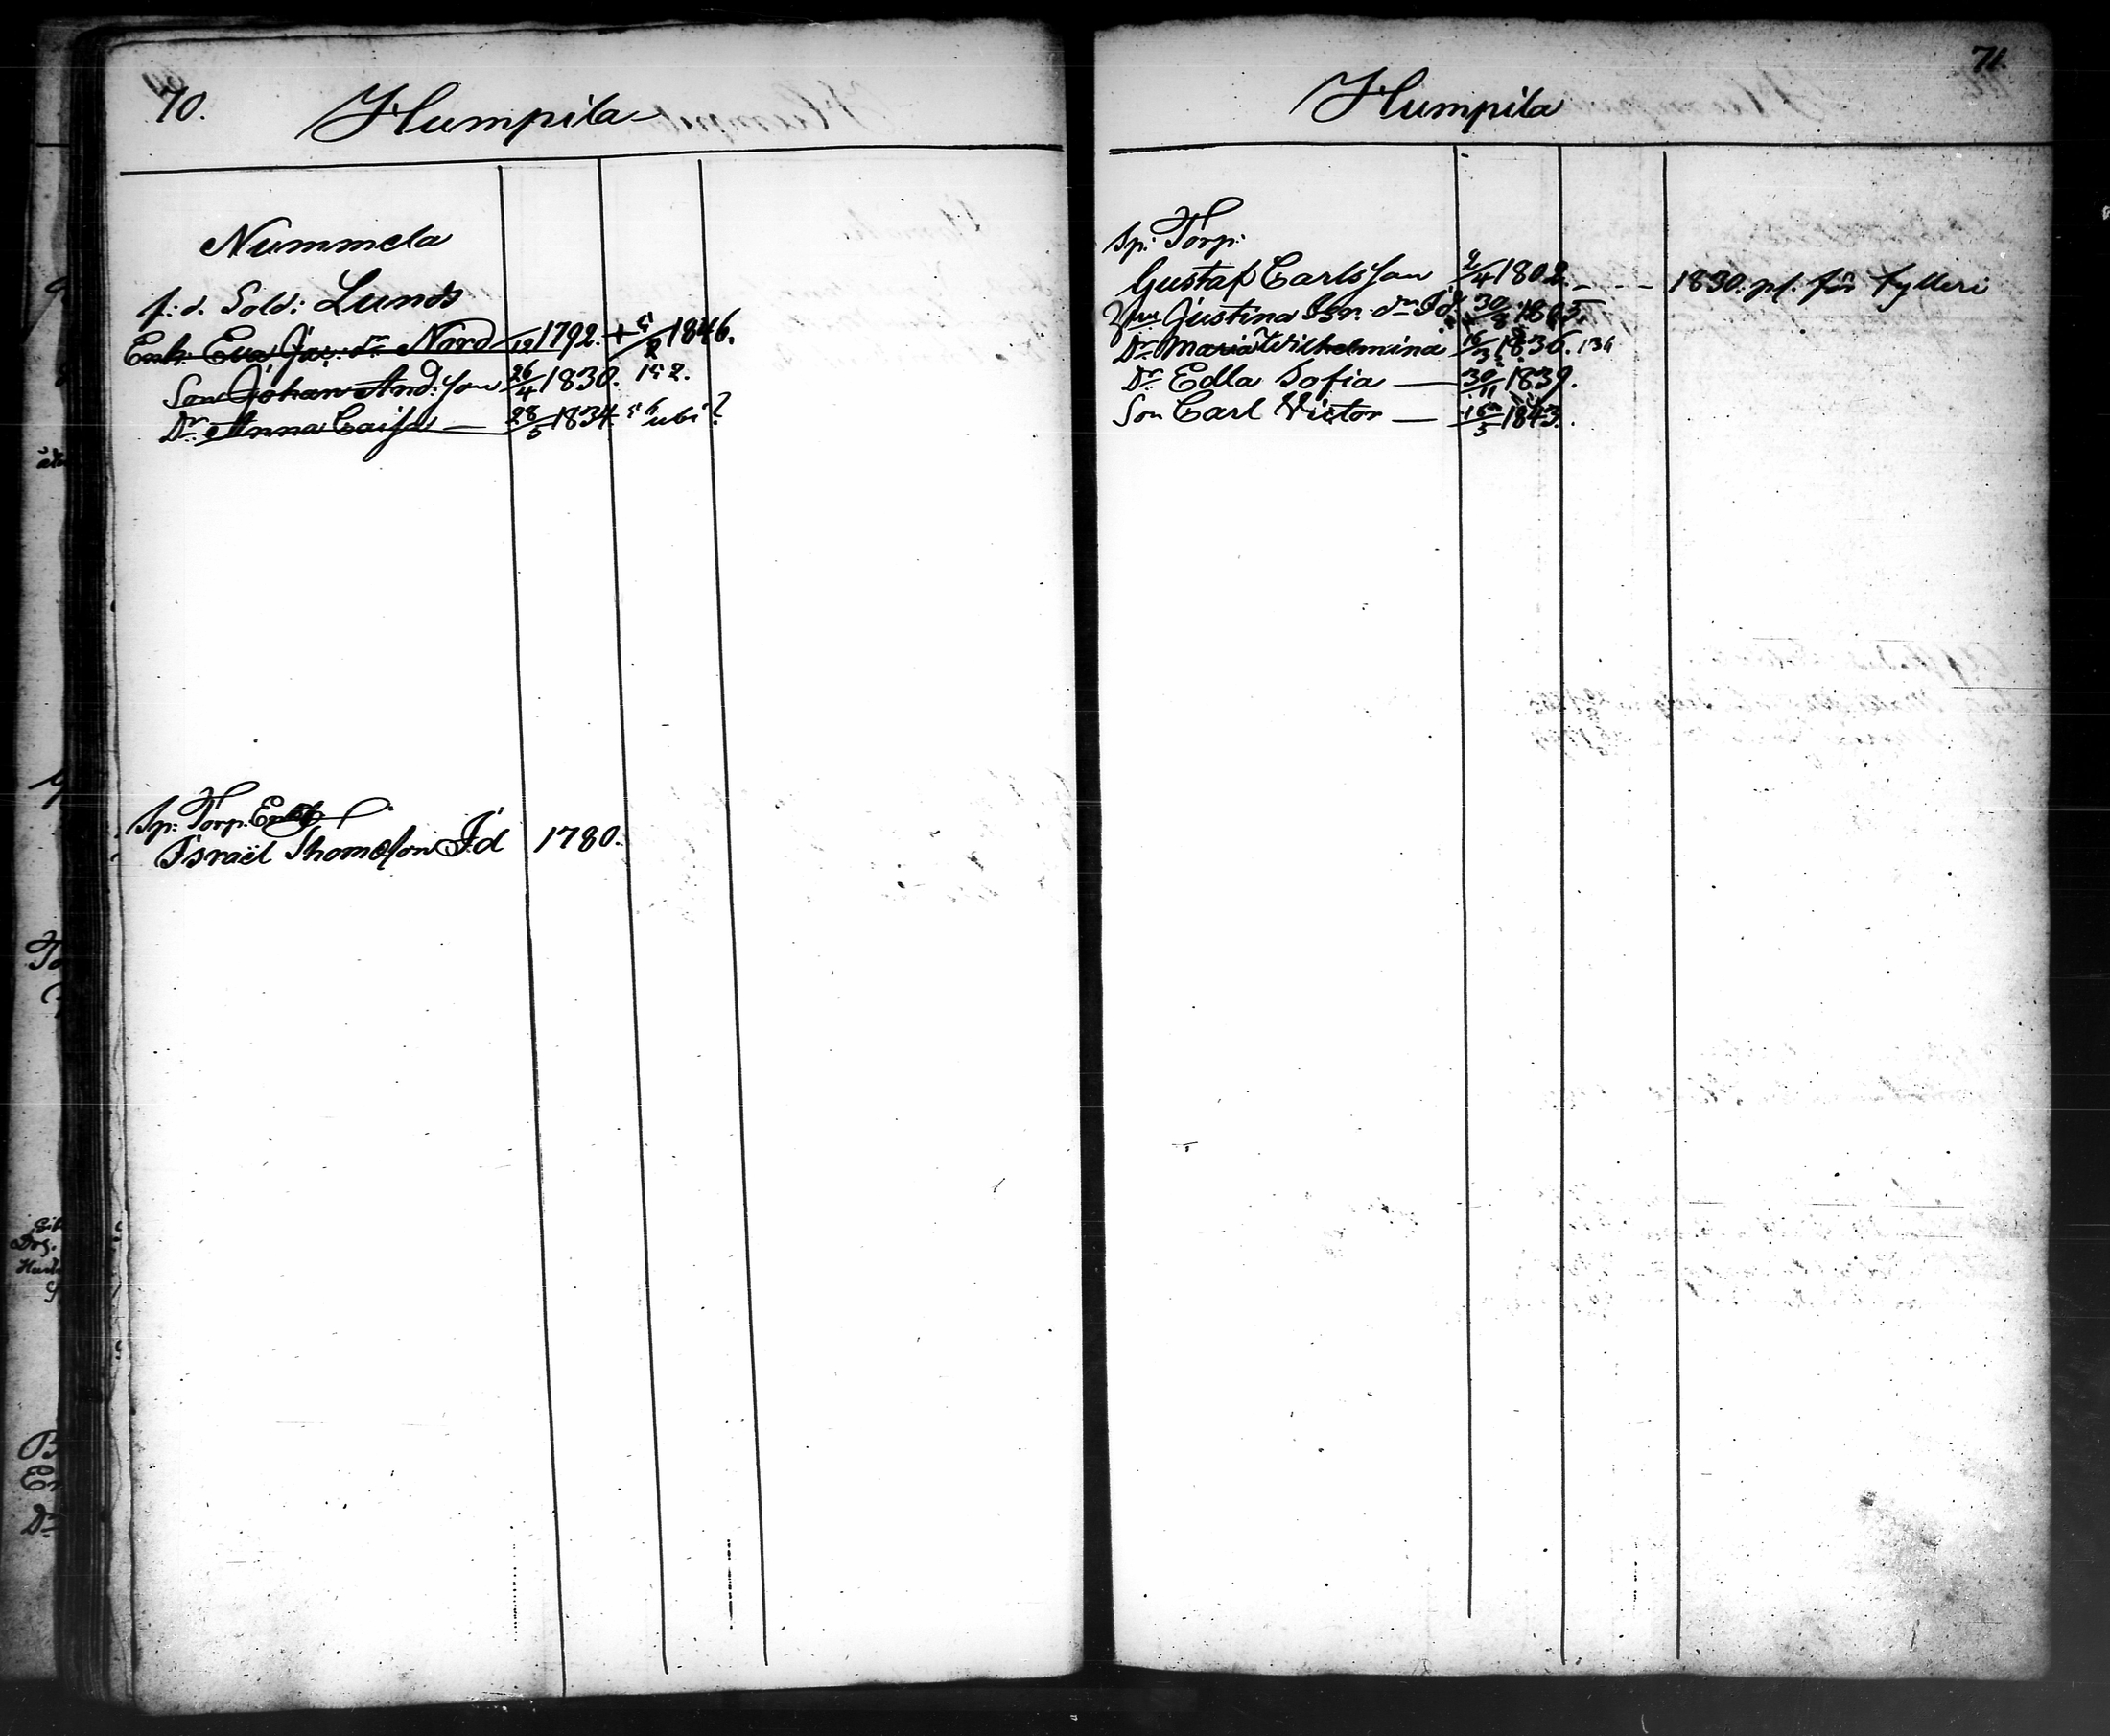 70.
Humpila
Nummela
f: d. Sold: Lunds
Enk: Eva Jac: dr Nord /12 1792. + 5/2 1846.
Son Johan And: son 26/4 1830. 152.
Dr Anna Caisa — 28/5 1834. ubi?
Sp: Torp. Enkl
Israël Thomasson I:d 1780.
71.
Humpila
Sp: Torp:
Gustaf Carlsson 2/4 1802. - - - 1830. pl. för fylleri
Justina Isr. dr I:d 30/8 1805.
Dr Maria Wilhelmina 16/3 1836. 134
Dr Edla Sofia — 30/11 1839.
Son Carl Victor — 16/5 1843.